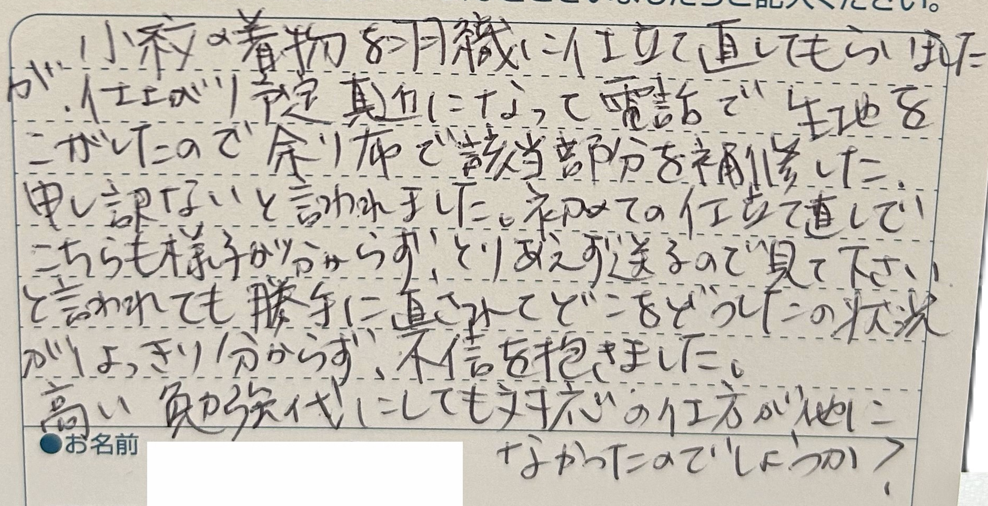 ご記入ください。
小紋の着物を羽織に仕立て直してもらいました
が、仕上がり予定真近になって電話で生地を
こがしたので余り布で該当部分を補修した、
申し訳ないと言われました。初めての仕立て直しで
こちらも様子が分からず、とりあえず送るので見て下さい
と言われても勝手に直されてどこをどうしたの状況
がはっきり分からず、不信を抱きました。
高い勉強代にしても対応の仕方が他に
なかったのでしょうか?
●お名前